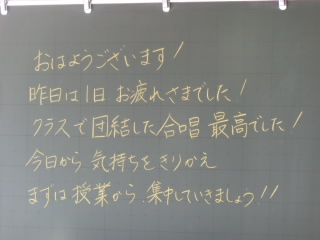 おはようございます!
昨日は1日お疲れさまでした!
クラスで団結した合唱 最高でした!
今日から気持ちをきりかえ
まずは授業から、集中していきましょう!!